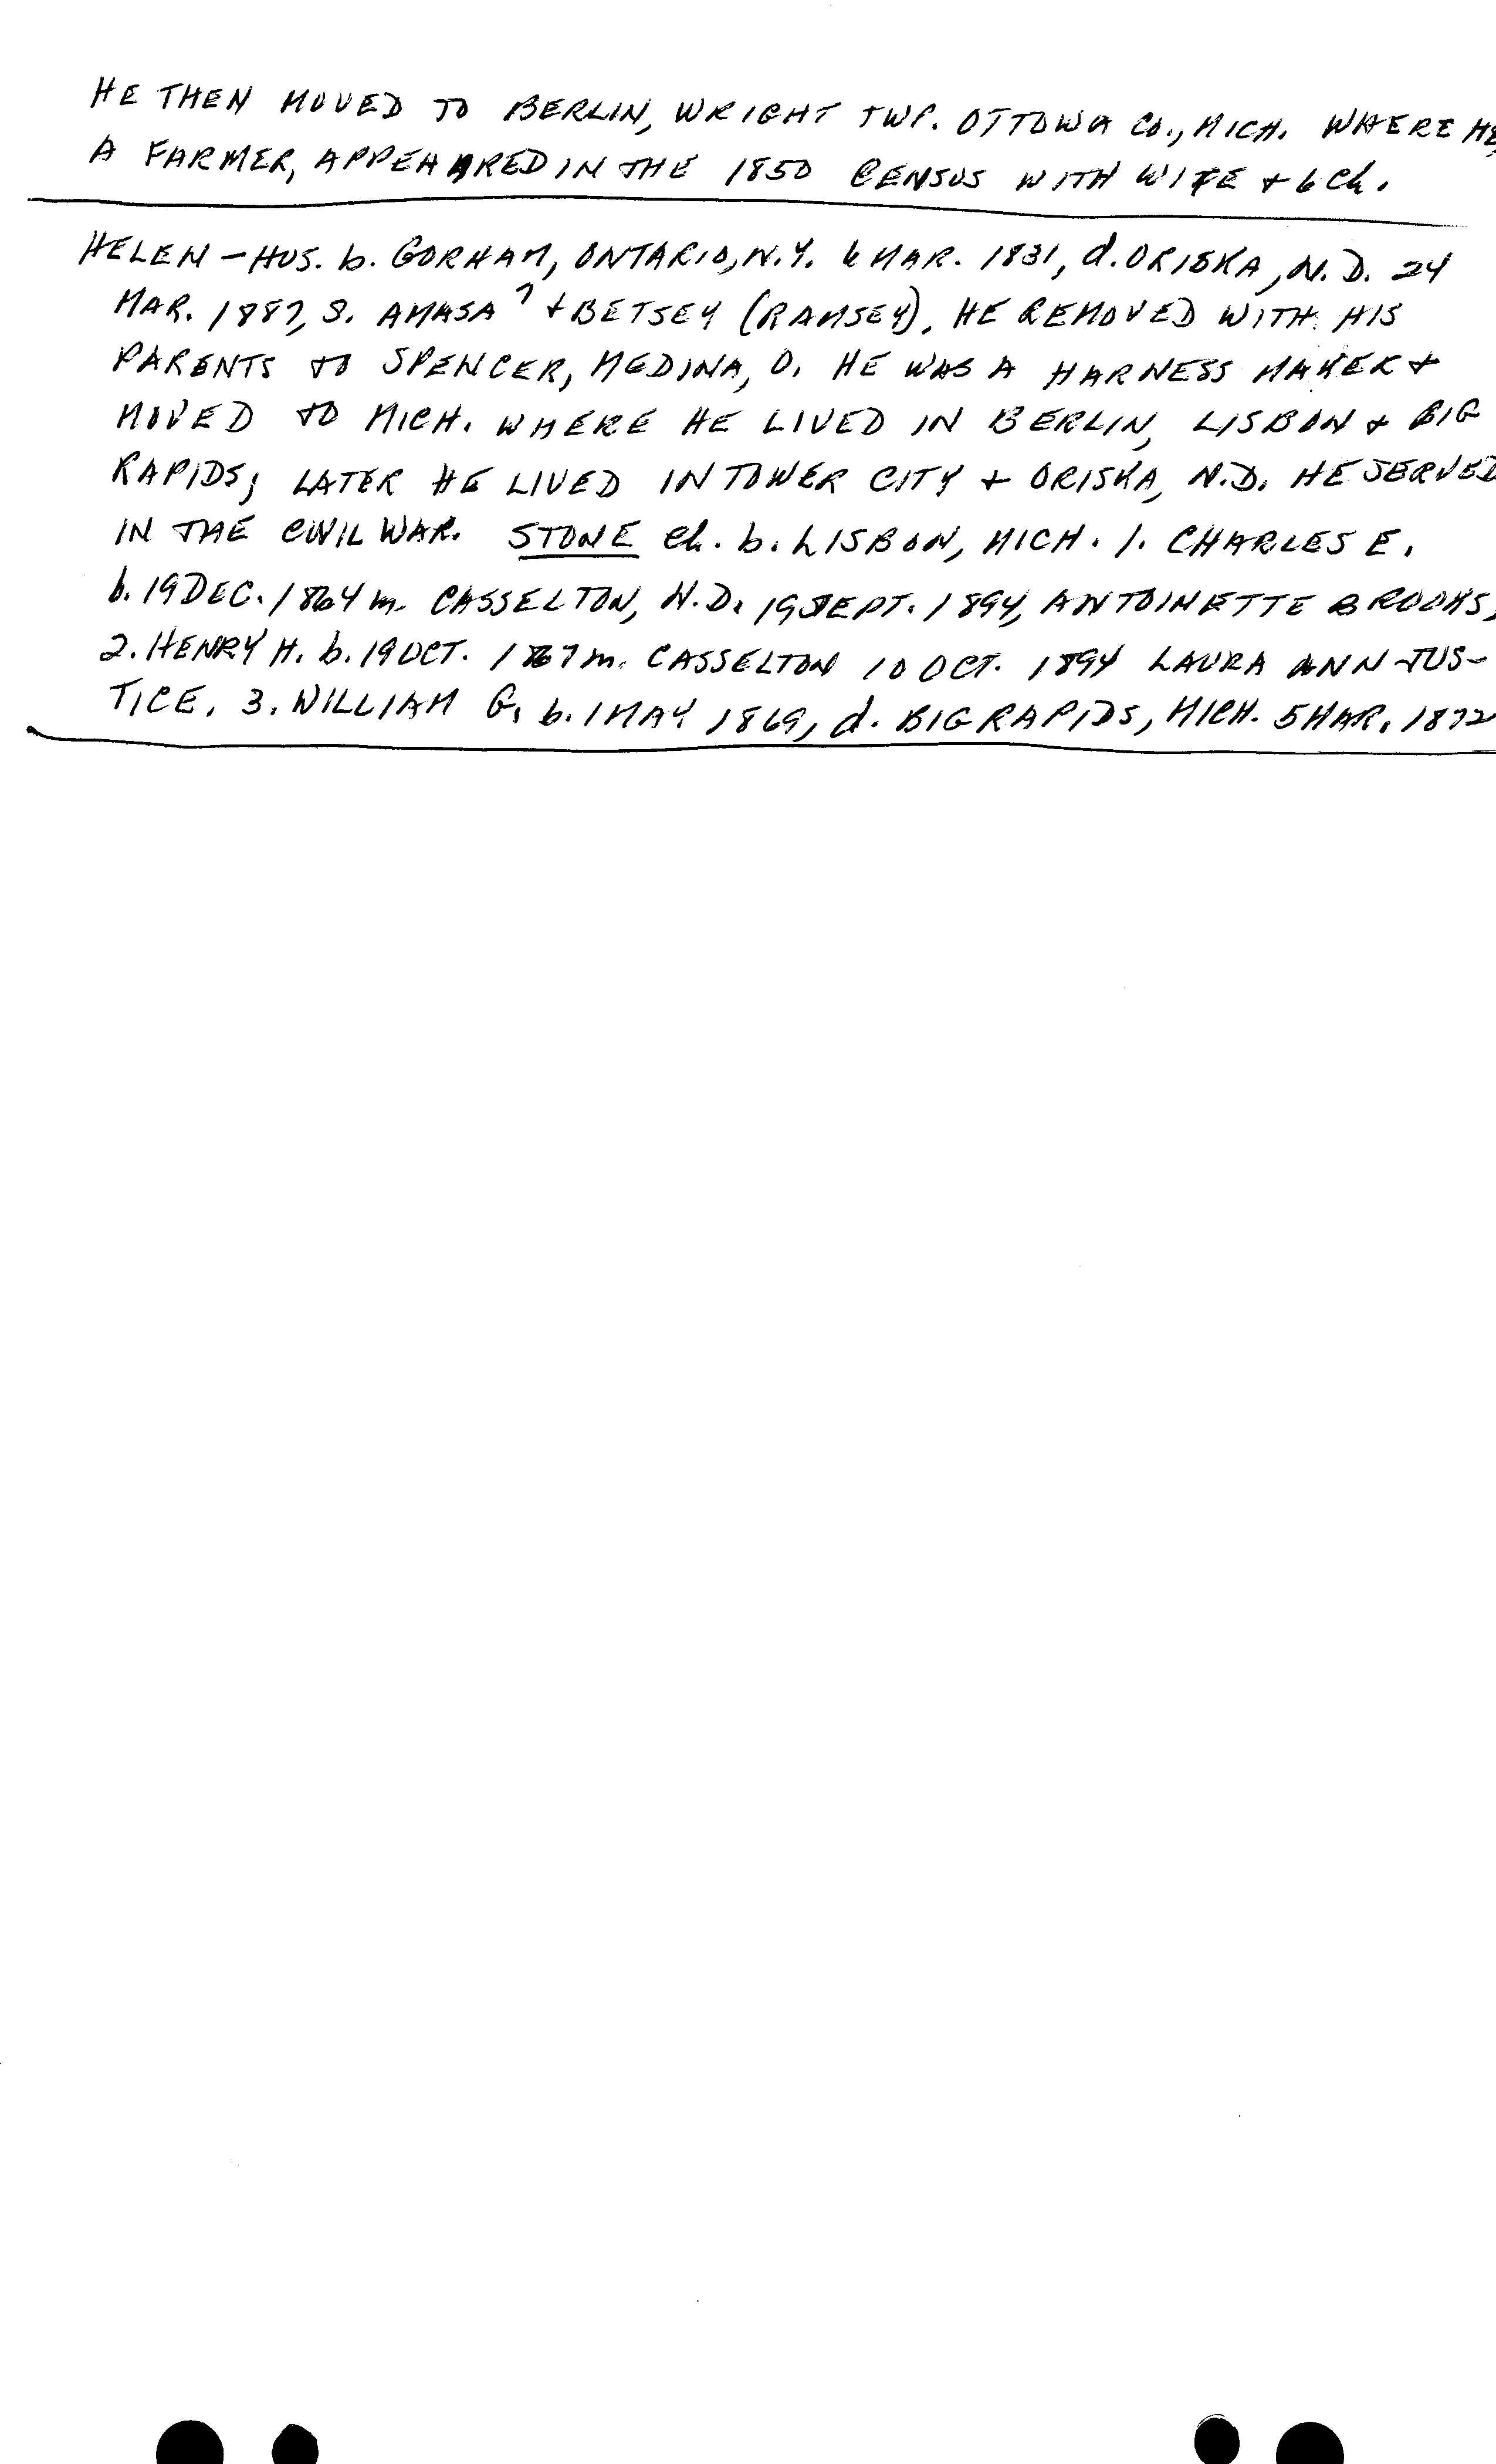 HE THEN MOVED TO BERLIN, WRIGHT TWP. OTTOWA CO., MICH. WHERE HE,
A FARMER, APPEARED IN THE 1850 CENSUS WITH WIFE + 6 Ch.
HELEN - HUS. b. GORHAM, ONTARIO, N.Y. 6 MAR. 1831, d. ORISKA, N.D. 24
MAR. 1887, S. AMASA ? + BETSEY (RAMSEY). HE REMOVED WITH HIS
PARENTS TO SPENCER, MEDINA, O. HE WAS A HARNESS MAKER +
MOVED TO MICH. WHERE HE LIVED IN BERLIN, LISBON + BIG
RAPIDS; LATER HE LIVED IN TOWER CITY + ORISKA, N.D. HE SERVED
IN THE CIVIL WAR. STONE Ch. b. LISBON, MICH. 1. CHARLES E.
b. 19 DEC. 1864 m. CASSELTON, N.D. 19 SEPT. 1894, ANTOINETTE BROOKS,
2. HENRY H. b. 19 OCT. 1867 m. CASSELTON 10 OCT. 1894 LAURA ANN JUS-
TICE. 3. WILLIAM G. b. 1 MAY 1869, d. BIG RAPIDS, MICH. 5 MAR. 1872